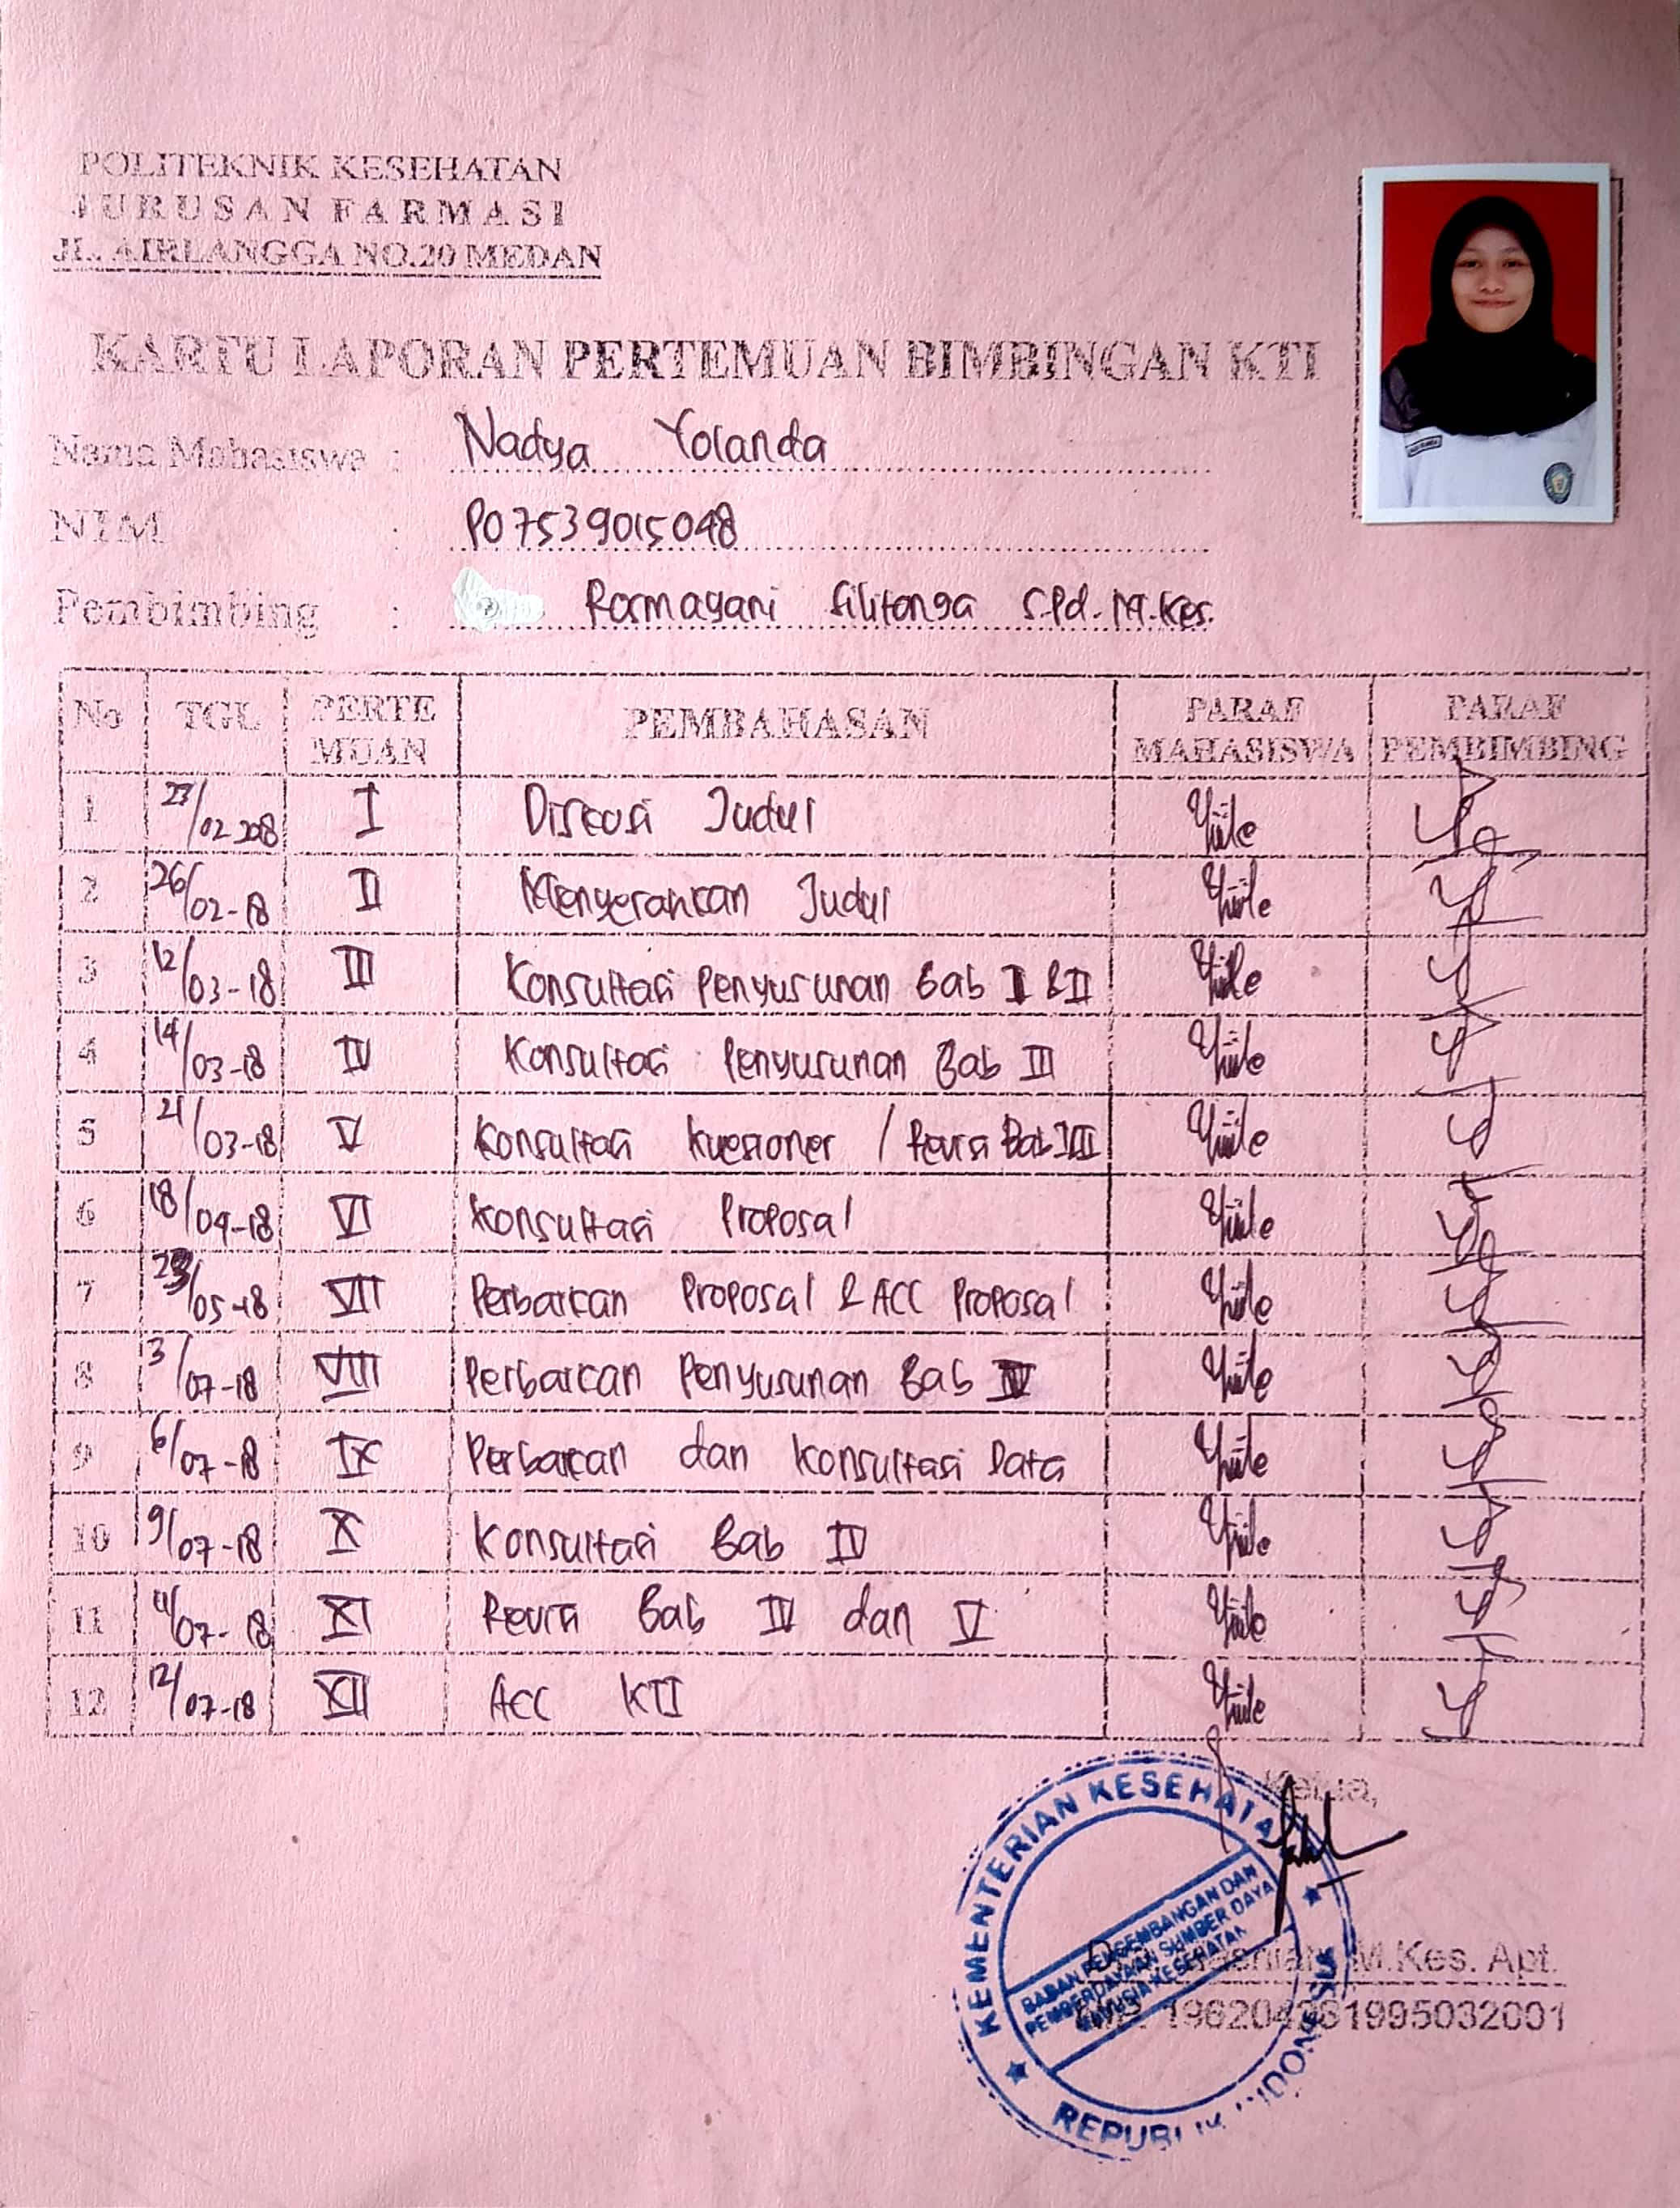 POLITEKNIK KESEHATAN
JURUSAN FARMASI
JL. AIRLANGGA NO.20 MEDAN
KARTU LAPORAN PERTEMUAN BIMBINGAN KTI
Nama Mahasiswa : Nadya Yolanda
NIM : P07539015048
Pembimbing : Rosmayani Silitonga S.Pd. M.Kes.
No TGL PERTE MUAN PEMBAHASAN PARAF MAHASISWA PARAF PEMBIMBING
1 23/02 2018 I Diskusi Judul
2 26/02-18 II Menyerahkan Judul
3 12/03-18 III Konsultasi Penyusunan Bab I & II
4 14/03-18 IV Konsultasi Penyusunan Bab III
5 21/03-18 V Konsultasi Kuesioner / Revisi Bab III
6 18/04-18 VI Konsultasi Proposal
7 /05-18 VII Perbaikan Proposal & ACC Proposal
8 3/07-18 VIII Perbaikan Penyusunan Bab IV
9 6/07-18 IX Perbaikan dan Konsultasi Data
10 9/07-18 X Konsultasi Bab IV
11 11/07-18 XI Revisi Bab IV dan V
12 12/07-18 XII ACC KTI
Ketua,
KEMENTERIAN KESEHATAN
BADAN PENGEMBANGAN DAN
PEMBERDAYAAN SUMBER DAYA
MANUSIA KESEHATAN
REPUBLIK INDONESIA
M.Kes. Apt.
995032001